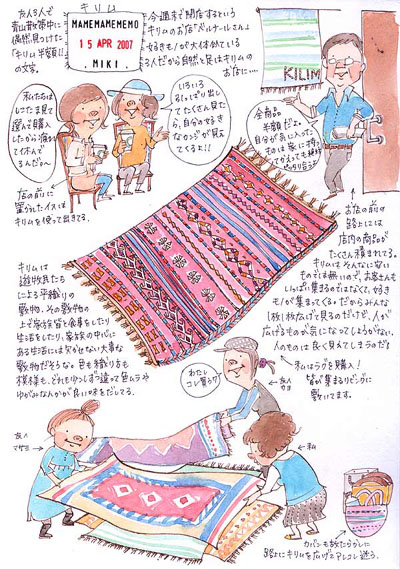 友人3人で
青山散歩中に
偶然見つけた
「キリム半額!!」
の文字。
キリム
MAMEMAMEMEMO
15 APR 2007
. MIKI .
今週末で閉店するという
キリムのお店
好きモノが大体似ている
3人だから自然と足はキリムの
お店に…
KILIM
全商品
半額だよ。
自分が気に入った
ものは家に持っ
私たちは
選んで購入
したから
休んで
るんだ〜
いろいろ
引っぱり出し
てたくさん見た
ら、自分の好き
なカンジが見え
てくる!!
店の前に
置かれたイスは
キリムを使って出来てる。
お店の前の
路上には
店内の商品が
たくさん積まれてる。
キリムはそんなに安い
ものでは無いので、お客さんも
いっぱい集まるのではなくて、好き
モノが集まってくる。だからみんな
1枚1枚広げて見るのだけど、人が
広げるものが気になってしょうがない。
人のものは良く見えてしまうのだ
キリムは
遊牧民たち
による平織りの
敷物。その敷物の
上で家族皆と食事をしたり
生活をしたり、家族の中心に
ある生活には欠かせない大事な
敷物だそうな。目も織り方も
模様も、どれも少しずつ違って色ムラや
ゆがみなんかが良い味をだしてる。
わたし
コレ買うワ
友人
私はラグを購入!
皆が集まるリビングに
敷いてます。
友人
マサミ
私
カバンも放たらかしに
路上にキリムを広げてアレコレ迷う。